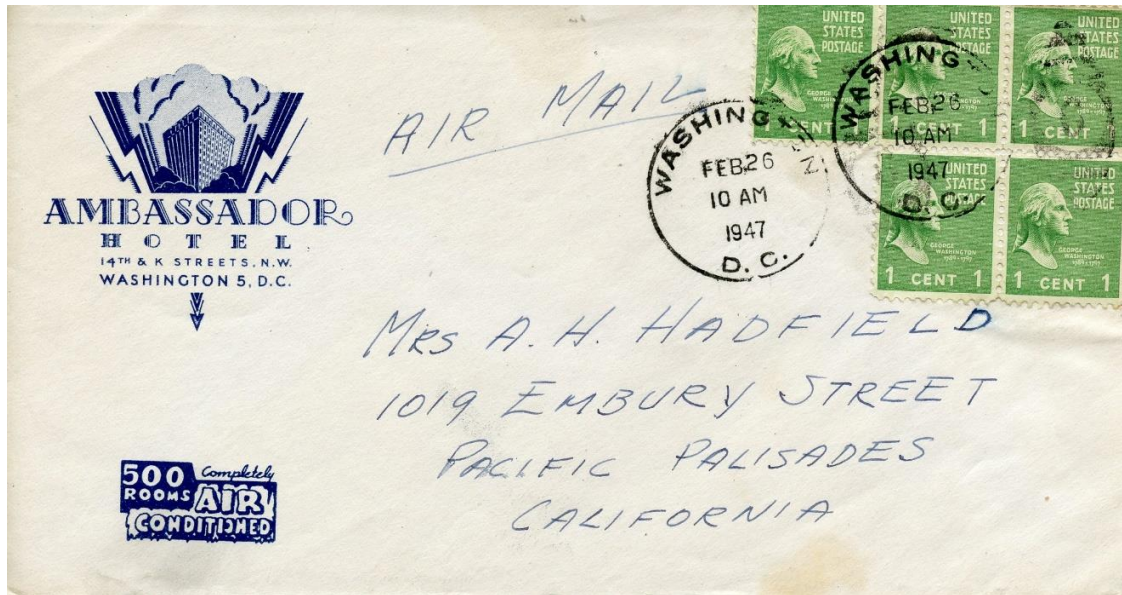 AMBASSADOR
HOTEL
14TH & K STREETS, N.W.
WASHINGTON 5, D.C.
500 ROOMS
Completely
AIR
CONDITIONED
AIR MAIL
WASHINGTON
FEB 26
10 AM
1947
D. C.
WASHING
FEB 26
10 AM
1947
D. C.
UNITED STATES POSTAGE
GEORGE WASHINGTON
1789-1797
1 CENT
UNITED STATES POSTAGE
GEORGE WASHINGTON
1 CENT 1
UNITED STATES POSTAGE
1 CENT
UNITED STATES POSTAGE
GEORGE WASHINGTON
1789-1797
1 CENT 1
UNITED STATES POSTAGE
GEORGE WASHINGTON
1789-1797
1 CENT 1
MRS A. H. HADFIELD
1019 EMBURY STREET
PACIFIC PALISADES
CALIFORNIA